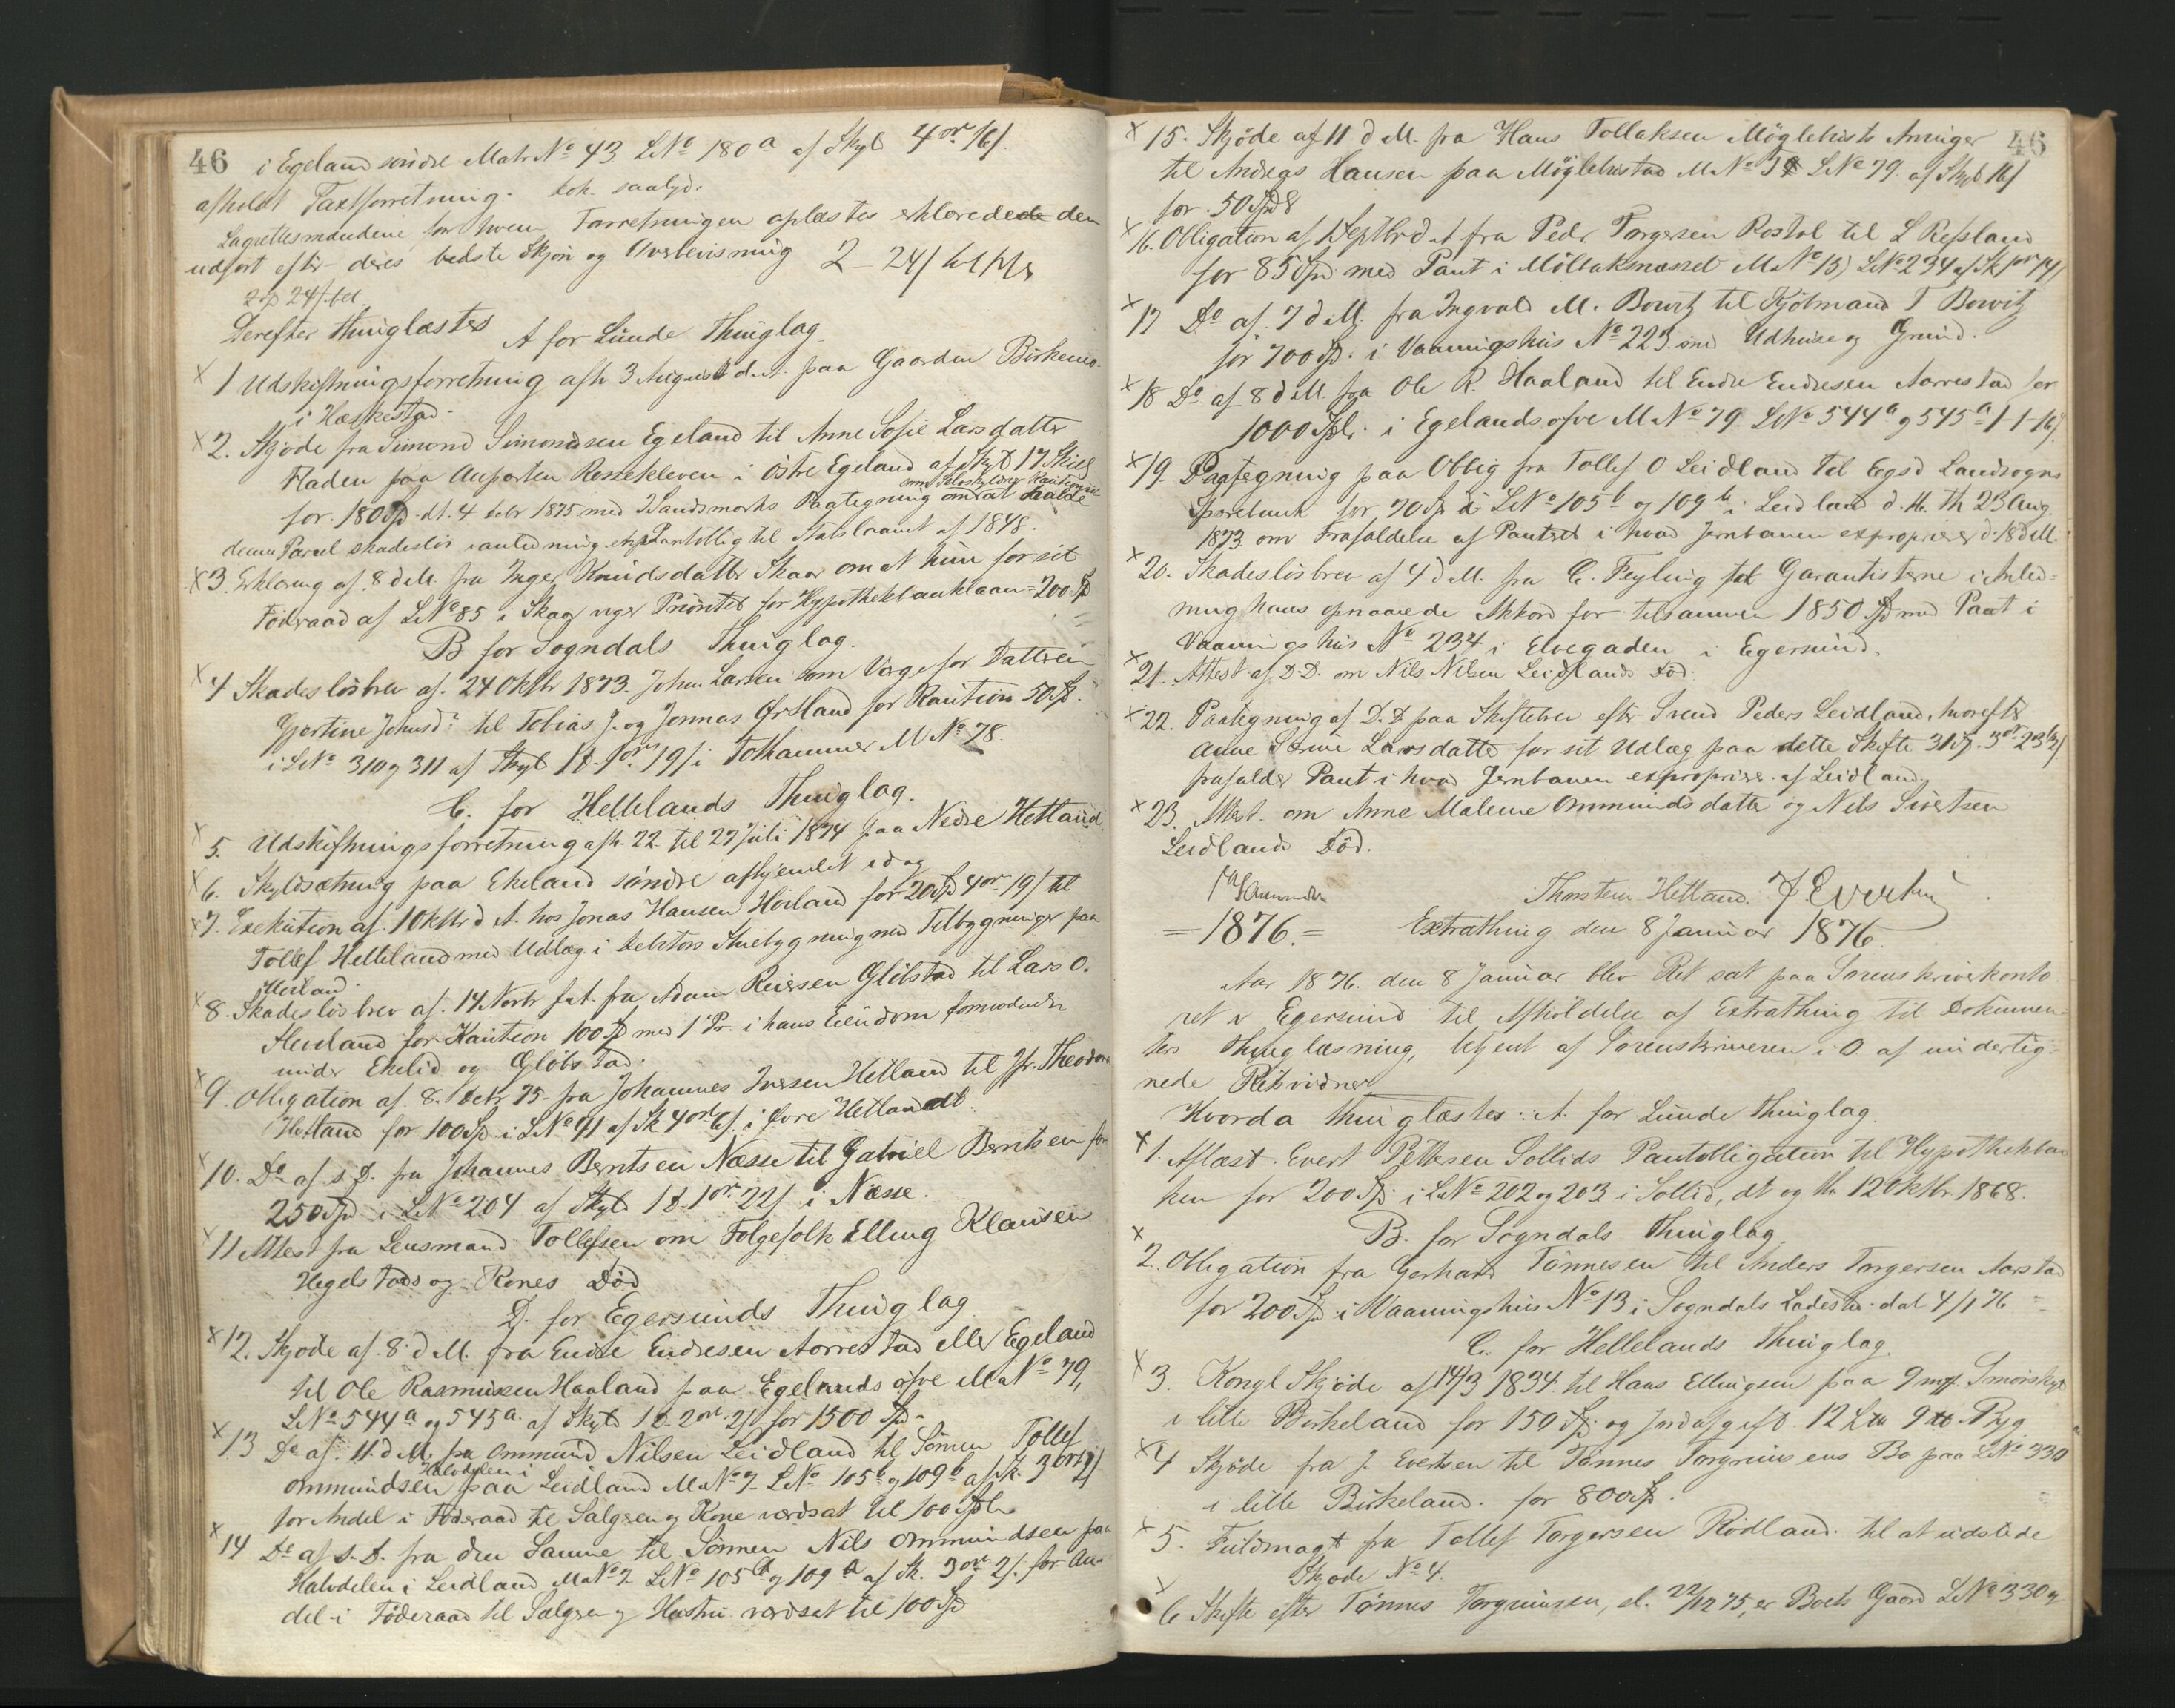 46
i Egeland søndre Matr No 43 LNo 180a af Skyld 4 ort 16/
afholdt Taxtforretning.
Lagrettesmændene for hvem Forretningen oplæstes erklærede den
udført efter deres bedste Skjøn og Overbevisning
Derefter thinglæstes A for Lunde Thinglag
x 1 Udskiftningsforretning afh 3 August d. A. paa Gaarden Birkemo
i Hæskestad.
x 2. Skjøde fra Simond Simondsen Egeland til Anne Sofie Larsdatter
Fladen paa Anparten Rossekleven i østre Egeland af Skyld 17 Skill
for 180 Spd dt. 4 1875 med Paategning om at
denne Parcel skadesløs til Statslaanet af 1848.
x 3. Erklæring af 8 d M. fra Inger Knudsdatter Skaar om at hun for sit
Føderaad af LNo 85 i Skaar viger Prioritet for Hypothekbanklaan 200 Spd
B for Sogndals Thinglag.
x 4 Skadesløsbrev af 24 Oktbr 1873. John Larsen som Værge for Datteren
Gjertine Johnsd: til Tobias J. og Jonnas Ørsland for Kaution 50 Spd.
i LNo 310 og 311 af Skyld 1d. 1 ort 19/ i Tothammer M No 78.
C. for Hellelands Thinglag.
x 5. Udskiftningsforretning afh. 22 til 27 Juli 1874 paa Nedre Hetland
x 6. Skyldsætning paa Ekeland søndre afhjemlet idag
x 7. Exekution af 1 Oktbr d A. hos Jonas Hansen Høiland for 20 Spd 4 ort 19/ til
Tollef Helleland med Udlæg i Debitors Stuebygning med Tilbygninger paa
Høiland.
x 8. Skadesløsbrev af 14 Novbr f. A. fra Adam Reiersen Gløbstad til Lars O.
for Kaution 100 Spd med 1 Pr. i hans Eiendom
under Ekelid og Gløbstad.
x 9. Obligation af 8. 75 fra Johannes Iversen Hetland til Jfr. Theodora
Hetland for 100 Spd i LNo 91 af Sk 4 ort 6/ i øvre Hetland.
x 10. Do af s. D. fra Johannes Berntsen Nesse til Gabriel Berntsen for
250 Spd i LNo 204 af Skyld 1d. 1 ort 22/ i Nesse.
x 11 Attest fra Lensmand Tollefsen om Folgefolk Elling Klausen
Hegelstads og Kones Død
D. for Egersunds Thinglag
x 12. Skjøde af 8 d M. fra Endre Endresen Aarrestad eller Egeland
til Ole Rasmussen Haaland paa Egelands øvre M No 79,
LNo 544a og 545a af Skyld 1d. 2 ort 2/ for 1500 Spd.
x 13 Do af 11 d M. fra Ommund Nilsen Leidland til Sønnen Tollef
Ommundsen paa Halvdelen i Leidland M No 7 LNo 105b og 109b af Sk. 3 ort 2/
for Andel i Føderaad til Sælgeren og Kone værdsat til 100 Spd.
x 14 Do af s. D. fra den Samme til Sønnen Nils Ommundsen paa
Halvdelen i Leidland M No 7 LNo 105a og 109a af Sk. 3 ort 2/. for An-
del i Føderaad til Sælgeren og Hustru værdsat til 100 Spd
46
x 15. Skjøde af 11 d M. fra Hans Tollaksen Møglehusts Arvinger
til Andreas Hansen paa Møglehustad LNo 79. af Skyld 16/
for 50 Spd
x 16. Obligation af 1 Septbr d A fra Peder Torgersen Rostøl til L Refsland
for 85 Spd med Pant i Møllaksnesset M No 15 LNo 234
x 17 Do af 7 d M. fra Ingvald M. Bowitz til Kjøbmand T Bowitz
for 700 Spd. i Vaaningshus No 223 med Udhuse og Grund.
x 18 Do af 8 d M. fra Ole R. Haaland til Endre Endresen Aarrestad for
1000 Spd. i Egelands øvre M No 79. LNo 544a og 545a
x 19. Paategning paa Oblig fra Tollef O Leidland til Egsd Landsogns
Sparebank for 70 Spd i LNo 105b og 109b i Leidland d. 16. th 23 Aug.
1873 om Frafaldelse af Pantret i hvad Jernbanen exproprierer d. 18 d M.
x 20. Skadesløsbrev af 4 d M. fra C. Feyling til Garantisterne i Anled-
ning hans opnaaede Akkord for tilsammen 1850 Spd med Pant i
Vaaningshus No 234 i Elvegaden i Egersund.
x 21. Attest af D. D. om Nils Nilsen Leidlands Død.
x 22. Paategning af D. D paa Skiftebrev efter Svend Peders Leidland, hvorefter
Anne Serine Larsdatter for sit Udlæg paa dette Skifte 31 Spd. 3 ort 23/
frafalder Pant i hvad Jernbanen exproprierer af Leidland
x 23. Attest. om Anne Malene Ommundsdatter og Nils Sivertsen
Leidlands Død.
Thorsten Hetland. J Evertsen
= 1876. = Extrathing den 8 Januar 1876
Aar 1876. den 8 Januar blev Ret sat paa Sorenskriverkonto
ret i Egersund til Afholdelse af Extrathing til Dokumen-
ters Thinglæsning, betjent af Sorenskriveren i O af underteg-
nede Retsvidner
Hvorda thinglæstes: A. for Lunde Thinglag
x 1. Aflæst. Evert Pettersen Sollids Pantobligation til Hypothekban
ken for 200 Spd. i LNo 202 og 203 i Sollid, dt og th 12 Oktbr. 1868.
B. for Sogndals Thinglag.
x 2. Obligation fra Gerhard Tønnesen til Anders Torgersen Aarstad
for 200 Spd i Vaaningshus No 13 i Sogndals Ladested dat 4/1 76
C. for Hellelands Thinglag.
x 3. Kongl Skjøde af 14/3 1834 til Hans Ellingsen paa 9 mrk Smørskyld
i lille Birkeland for 150 Spd og Jordafgift 12 9 Byg
x 4 Skjøde fra J. Evertsen til Tønnes Torgriusens Bo paa LNo 330
i lille Birkeland. for 800 Spd.
x 5. Fuldmagt fra Tollef Torgersen Rødland til at udstede
Skjøde No 4.
x 6 Skifte efter Tønnes Torgriusen, sl. 22/12 75, er Boets Gaard LNo 330 og